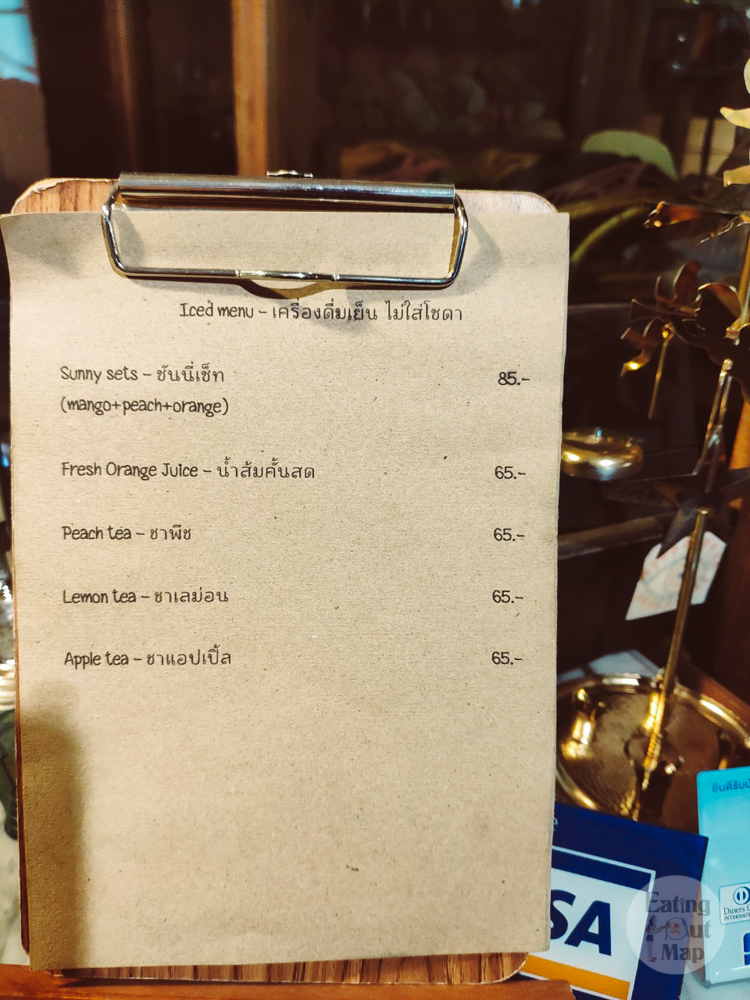 Iced menu – เครื่องดื่มเย็น ไม่ใส่โซดา
Sunny sets – ซันนี่เซ็ท 85.-
(mango+peach+orange)
Fresh Orange Juice – น้ำส้มคั้นสด 65.-
Peach tea – ชาพีช 65.-
Lemon tea – ชาเลม่อน 65.-
Apple tea – ชาแอปเปิ้ล 65.-
ยินดีรับ
Diners
INTERNATIONAL
SA
Eating
Out
Map